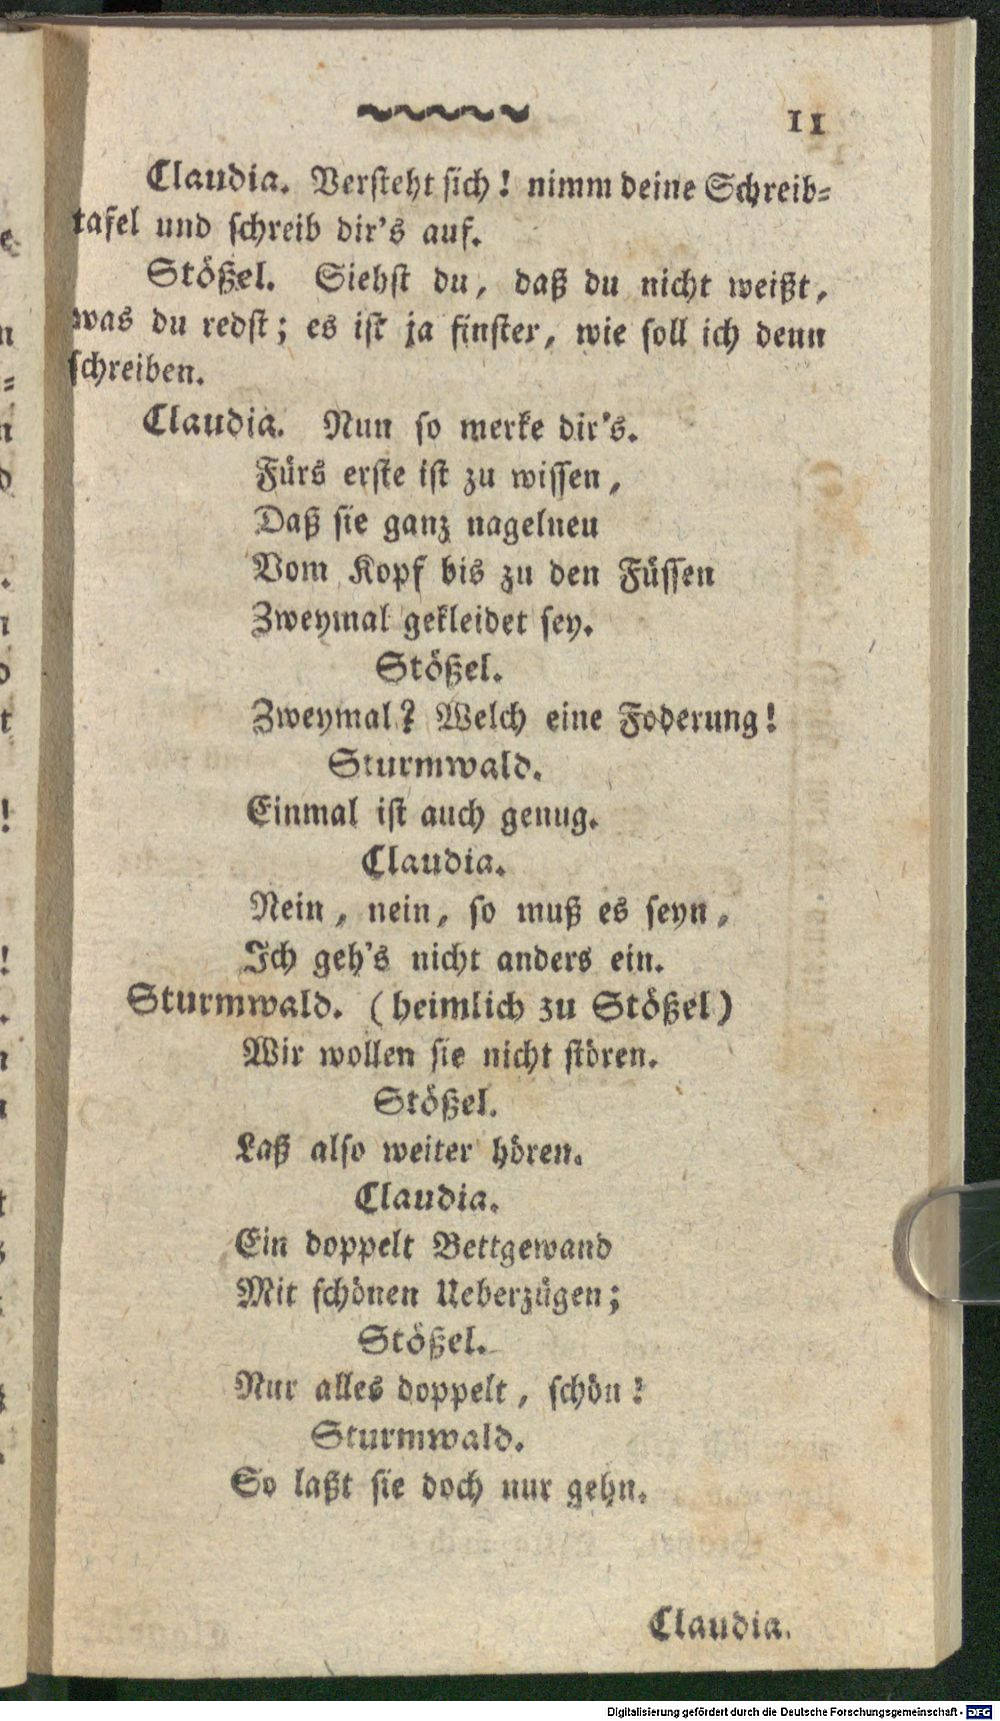 11
Claudia. Versteht sich! nimm deine Schreib-
tafel und schreib dir's auf.
Stößel. Siehst du, daß du nicht weißt,
was du redst; es ist ja finster, wie soll ich denn
schreiben.
Claudia. Nun so merke dir's.
Fürs erste ist zu wissen,
Daß sie ganz nagelneu
Vom Kopf bis zu den Füssen
Zweymal gekleidet sey.
Stößel.
Zweymal? Welch eine Foderung!
Sturmwald.
Einmal ist auch genug.
Claudia.
Nein, nein, so muß es seyn,
Ich geh's nicht anders ein.
Sturmwald. (heimlich zu Stößel)
Wir wollen sie nicht stören.
Stößel.
Laß also weiter hören.
Claudia.
Ein doppelt Bettgewand
Mit schönen Ueberzügen;
Stößel.
Nur alles doppelt, schön!
Sturmwald.
So laßt sie doch nur gehn.
Claudia.
Digitalisierung gefördert durch die Deutsche Forschungsgemeinschaft - DFG